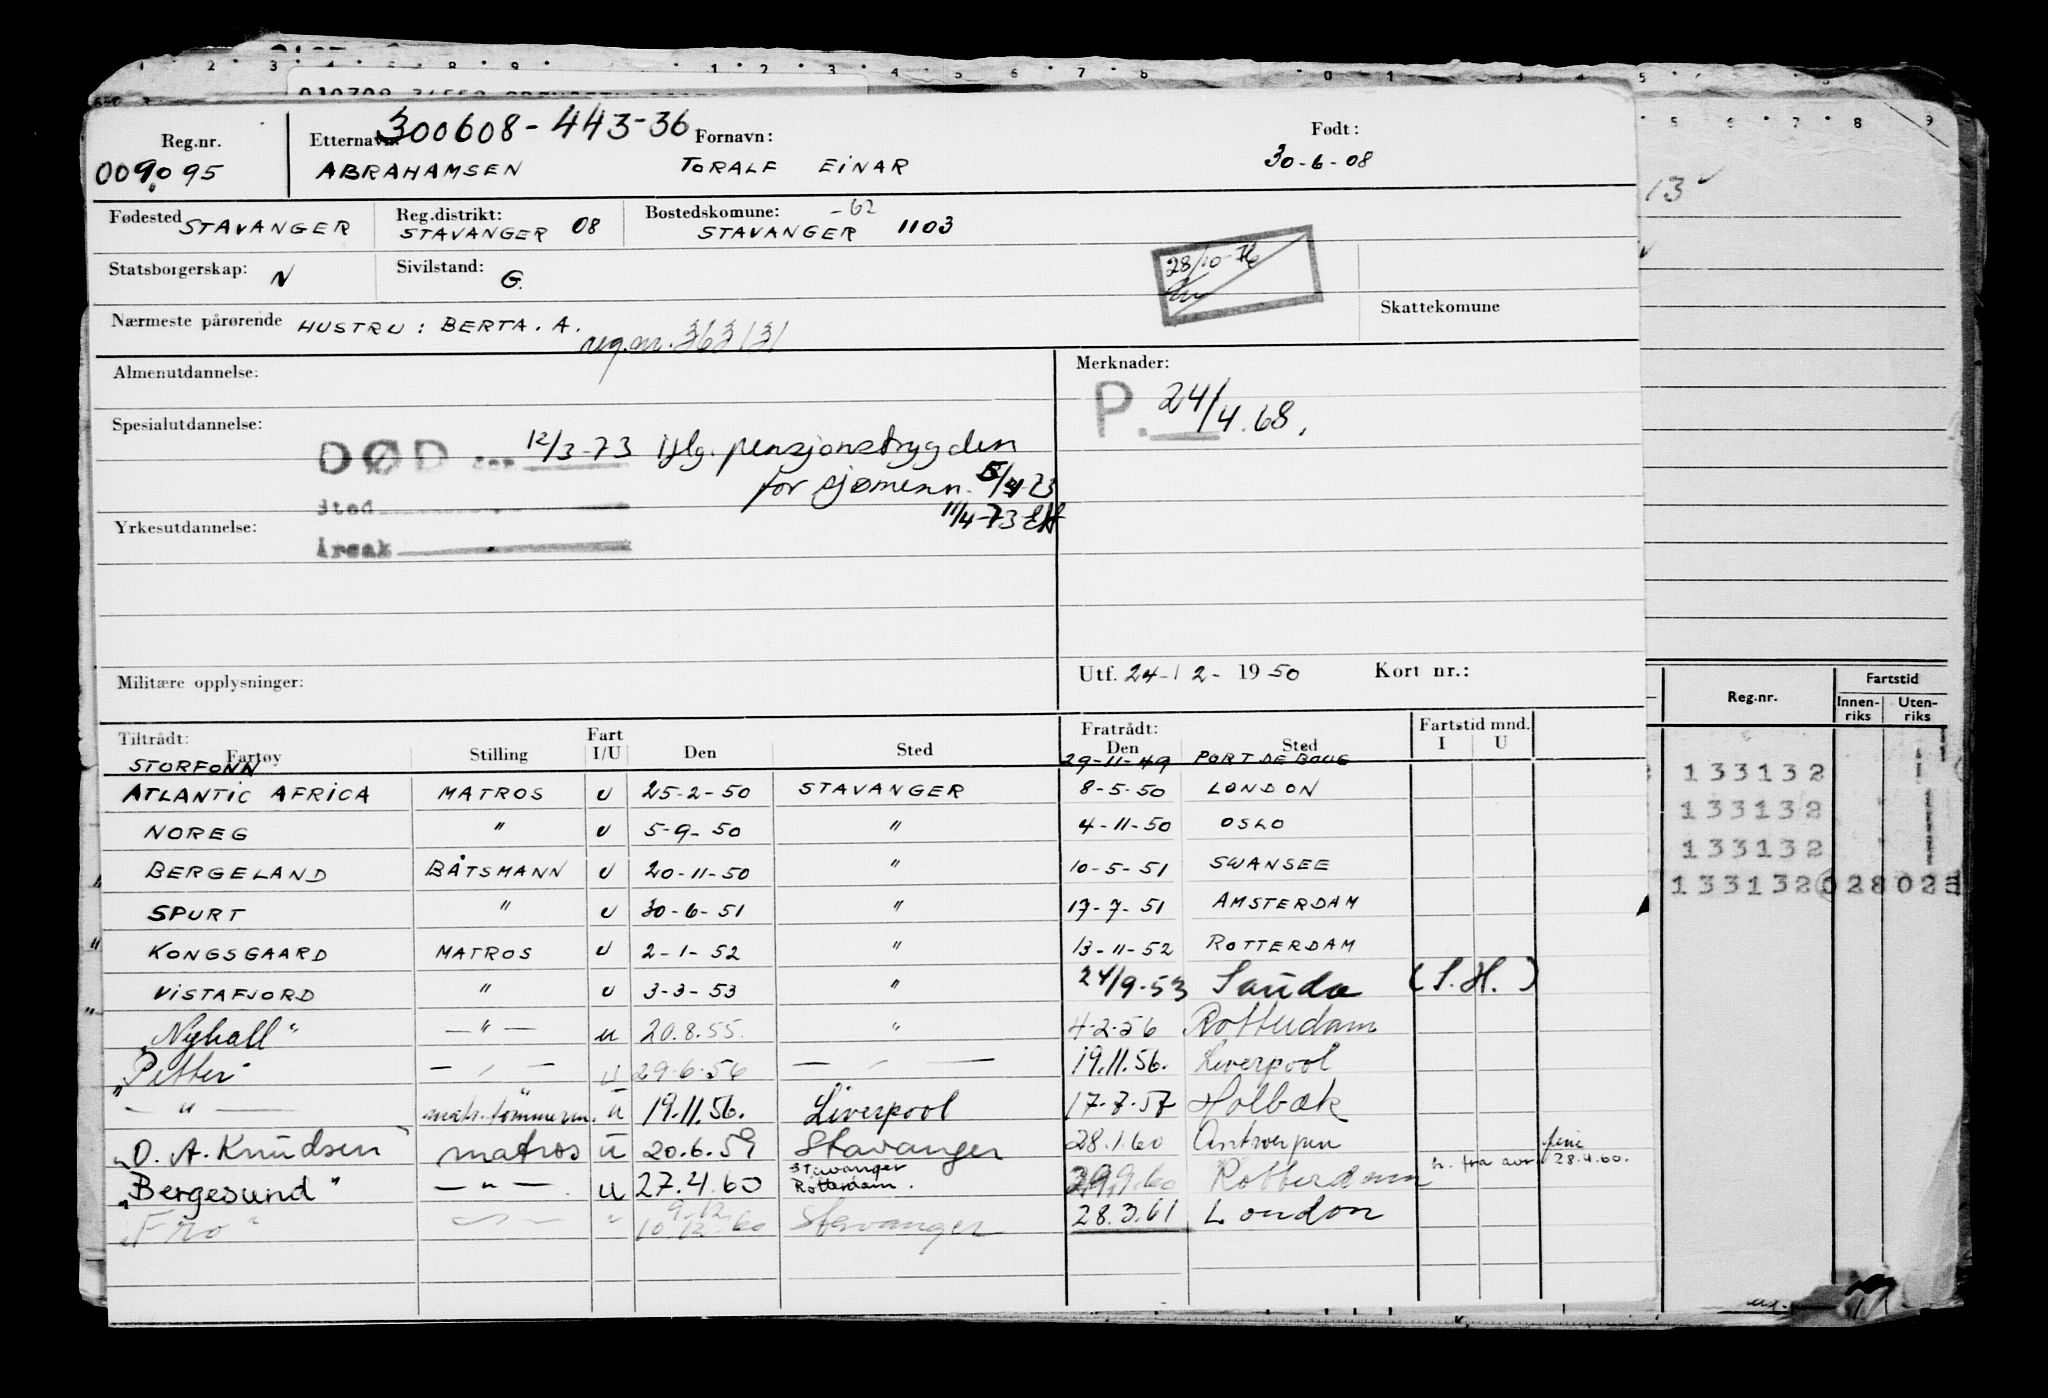 300608-443-36
Reg.nr. Etternavn: Fornavn: Født:
009095 ABRAHAMSEN TORALF EINAR 30-6-08
Fødested STAVANGER Reg.distrikt: STAVANGER 08 Bostedskomune: -62 STAVANGER 1103
28/10-76
Statsborgerskap: N Sivilstand: G.
Skattekomune
Nærmeste pårørende HUSTRU: BERTA. A. reg.nr. 363131
Almenutdannelse: Merknader:
P. 24/4.68.
Spesialutdannelse:
DØD den 12/3-73 iflg. pensjonstrygden
for sjømenn. 5/4-73
Sted 11/4-73 EH
Yrkesutdannelse:
Årsak
Utf. 24-12-1950 Kort nr.:
Militære opplysninger:
Tiltrådt: Fart Fratrådt: Fartstid mnd.
Fartøy Stilling I/U Den Sted Den Sted I U
STORFONN 29-11-49 PORT DE BOUC
ATLANTIC AFRICA MATROS U 25-2-50 STAVANGER 8-5-50 LONDON
NOREG " U 5-9-50 " 4-11-50 OSLO
BERGELAND BÅTSMANN U 20-11-50 " 10-5-51 SWANSEE
SPURT " U 30-6-51 " 17-7-51 AMSTERDAM
KONGSGAARD MATROS U 2-1-52 " 13-11-52 ROTTERDAM
VISTAFJORD " U 3-3-53 " 24/9-53 Sauda (S.H.)
"Nyhall" —"— u 20.8.55. " 4-2-56 Rotterdam
"Petter" — " — u 29-6-56 — " — 19.11.56. Liverpool
— " — matr.tømmerm. u 19.11.56. Liverpool 17-7-57 Holbæk
"O. A. Knudsen" matros u 20.6.59 Stavanger 28.1.60 Antwerpen
"Bergesund" —"— u 27.4.60 Stavanger Rotterdam. 29.9.60 Rotterdam h. fra avr. ferie 28.4.60.
"Fro" —"— " 9.12. 10.12.60 Stavanger 28.3.61 London
13
Reg.nr. Fartstid
Innenriks Utenriks
133132
133132
133132
133132 028 028